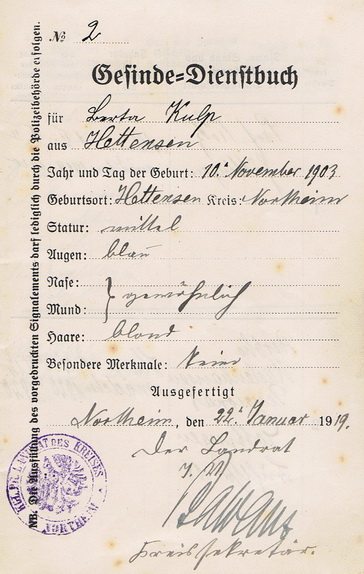 № 2
Gesinde=Dienstbuch
für Berta Kulp
aus Hettensen
Jahr und Tag der Geburt: 10. November 1903
Geburtsort: Hettensen Kreis: Northeim
Statur: mittel
Augen: blau
Nase:
Mund: } gewöhnlich
Haare: blond
Besondere Merkmale: keine
Ausgefertigt
Northeim, den 22. Januar 1919.
Der Landrat
J. V.
Kreissekretär.
NB. Die Ausfüllung des vorgedruckten Signalements darf lediglich durch die Polizeibehörde erfolgen.
LANDRAT DES KREISES
NORTHEIM